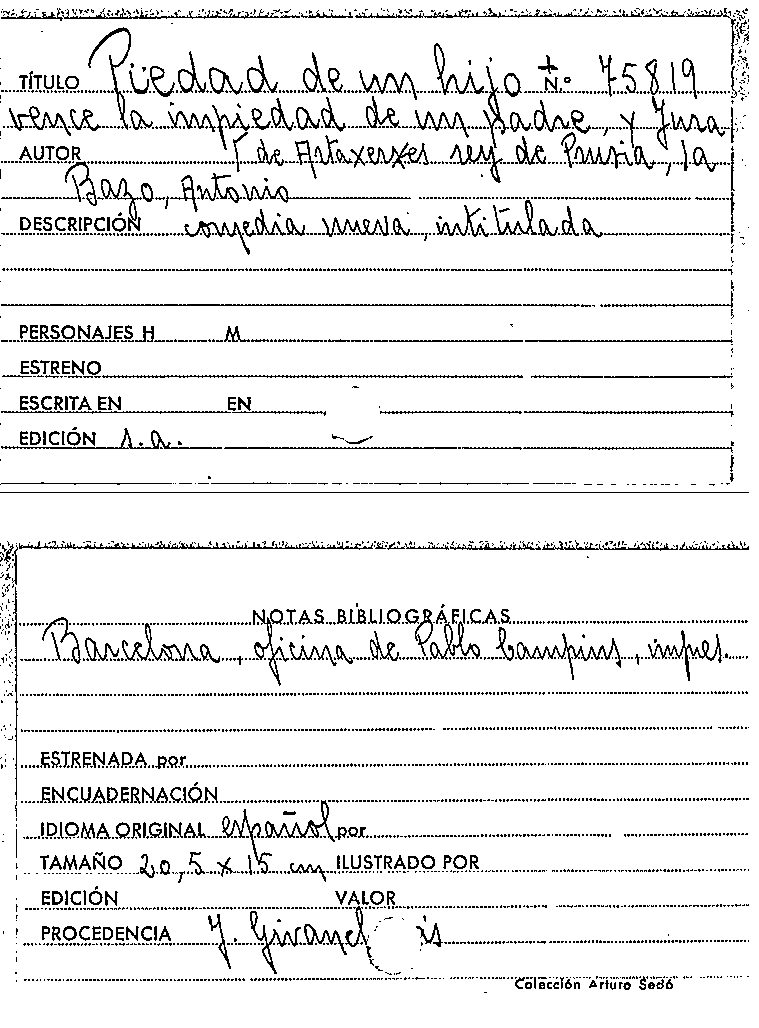 TÍTULO Piedad de un hijo + N.º 75819
vence la impiedad de un padre, y Jura
AUTOR de Artaxerxes rey de Prusia, la
Bazo, Antonio
DESCRIPCIÓN comedia nueva, intitulada
PERSONAJES H M
ESTRENO
ESCRITA EN EN
EDICIÓN s.a.
NOTAS BIBLIOGRÁFICAS
Barcelona, oficina de Pablo Campins, impes.
ESTRENADA por
ENCUADERNACIÓN
IDIOMA ORIGINAL español por
TAMAÑO 20,5 x 15 cm ILUSTRADO POR
EDICIÓN VALOR
PROCEDENCIA J. Givanel
Colección Arturo Sedó